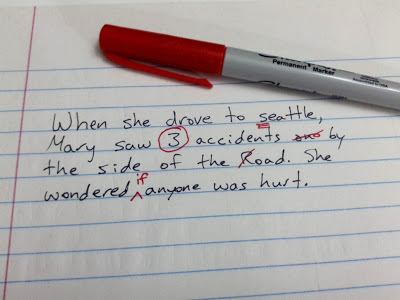 Permanent Marker
When she drove to seattle,
Mary saw 3 accidents by
the side of the Road. She
wondered if anyone was hurt.